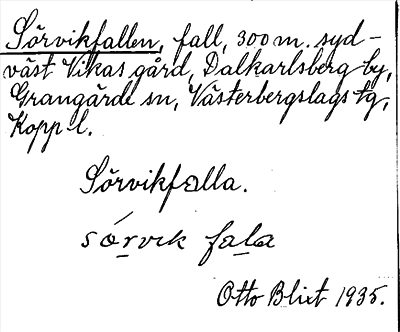 Sörvikfallen, fall, 300 m. syd-
väst Vikas gård, Dalkarlsberg by,
Grangärde sn, Västerbergslags tg,
Kopp l.
Sörvikfalla.
sórvik fala
Otto Blixt 1935.